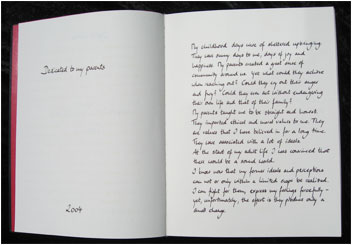 Dedicated to my parents
2004
My childhood days were of sheltered upbringing.
They were sunny days to me, days of joy and
happiness. My parents created a great sense of
community around us. Yet what could they achieve
when reaching out? Could they cry out their anger
and fury? Could they even act without endangering
their own life and that of their family?
My parents taught me to be straight and honest.
They imparted ethical and moral values to me. They
are values that I have believed in for a long time.
They were associated with a lot of ideals.
At the start of my adult life I was convinced that
there would be a sound world.
I know now that my former ideals and perceptions
can not or only within a limited scope be realised.
I can fight for them, express my feelings forcefully –
yet, unfortunately, the effort is they produce only a
small change.